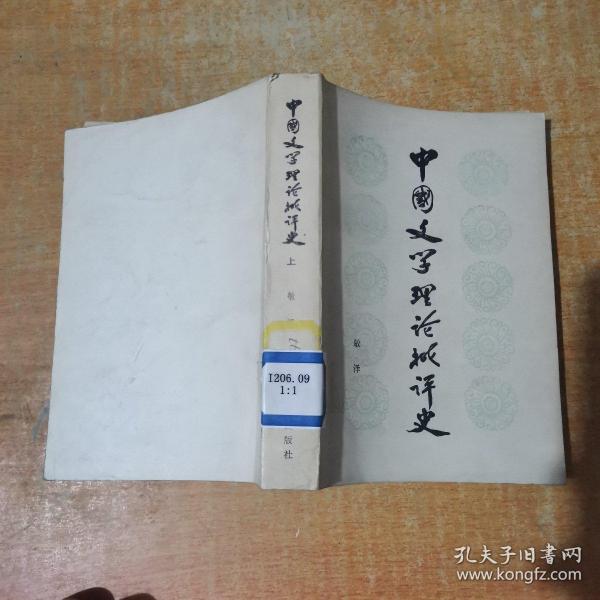 中國文学理论批评史
上
敏
I206.09
1:1
版社
中國文学理论批评史
敏泽
孔夫子旧书网
www.kongfz.com